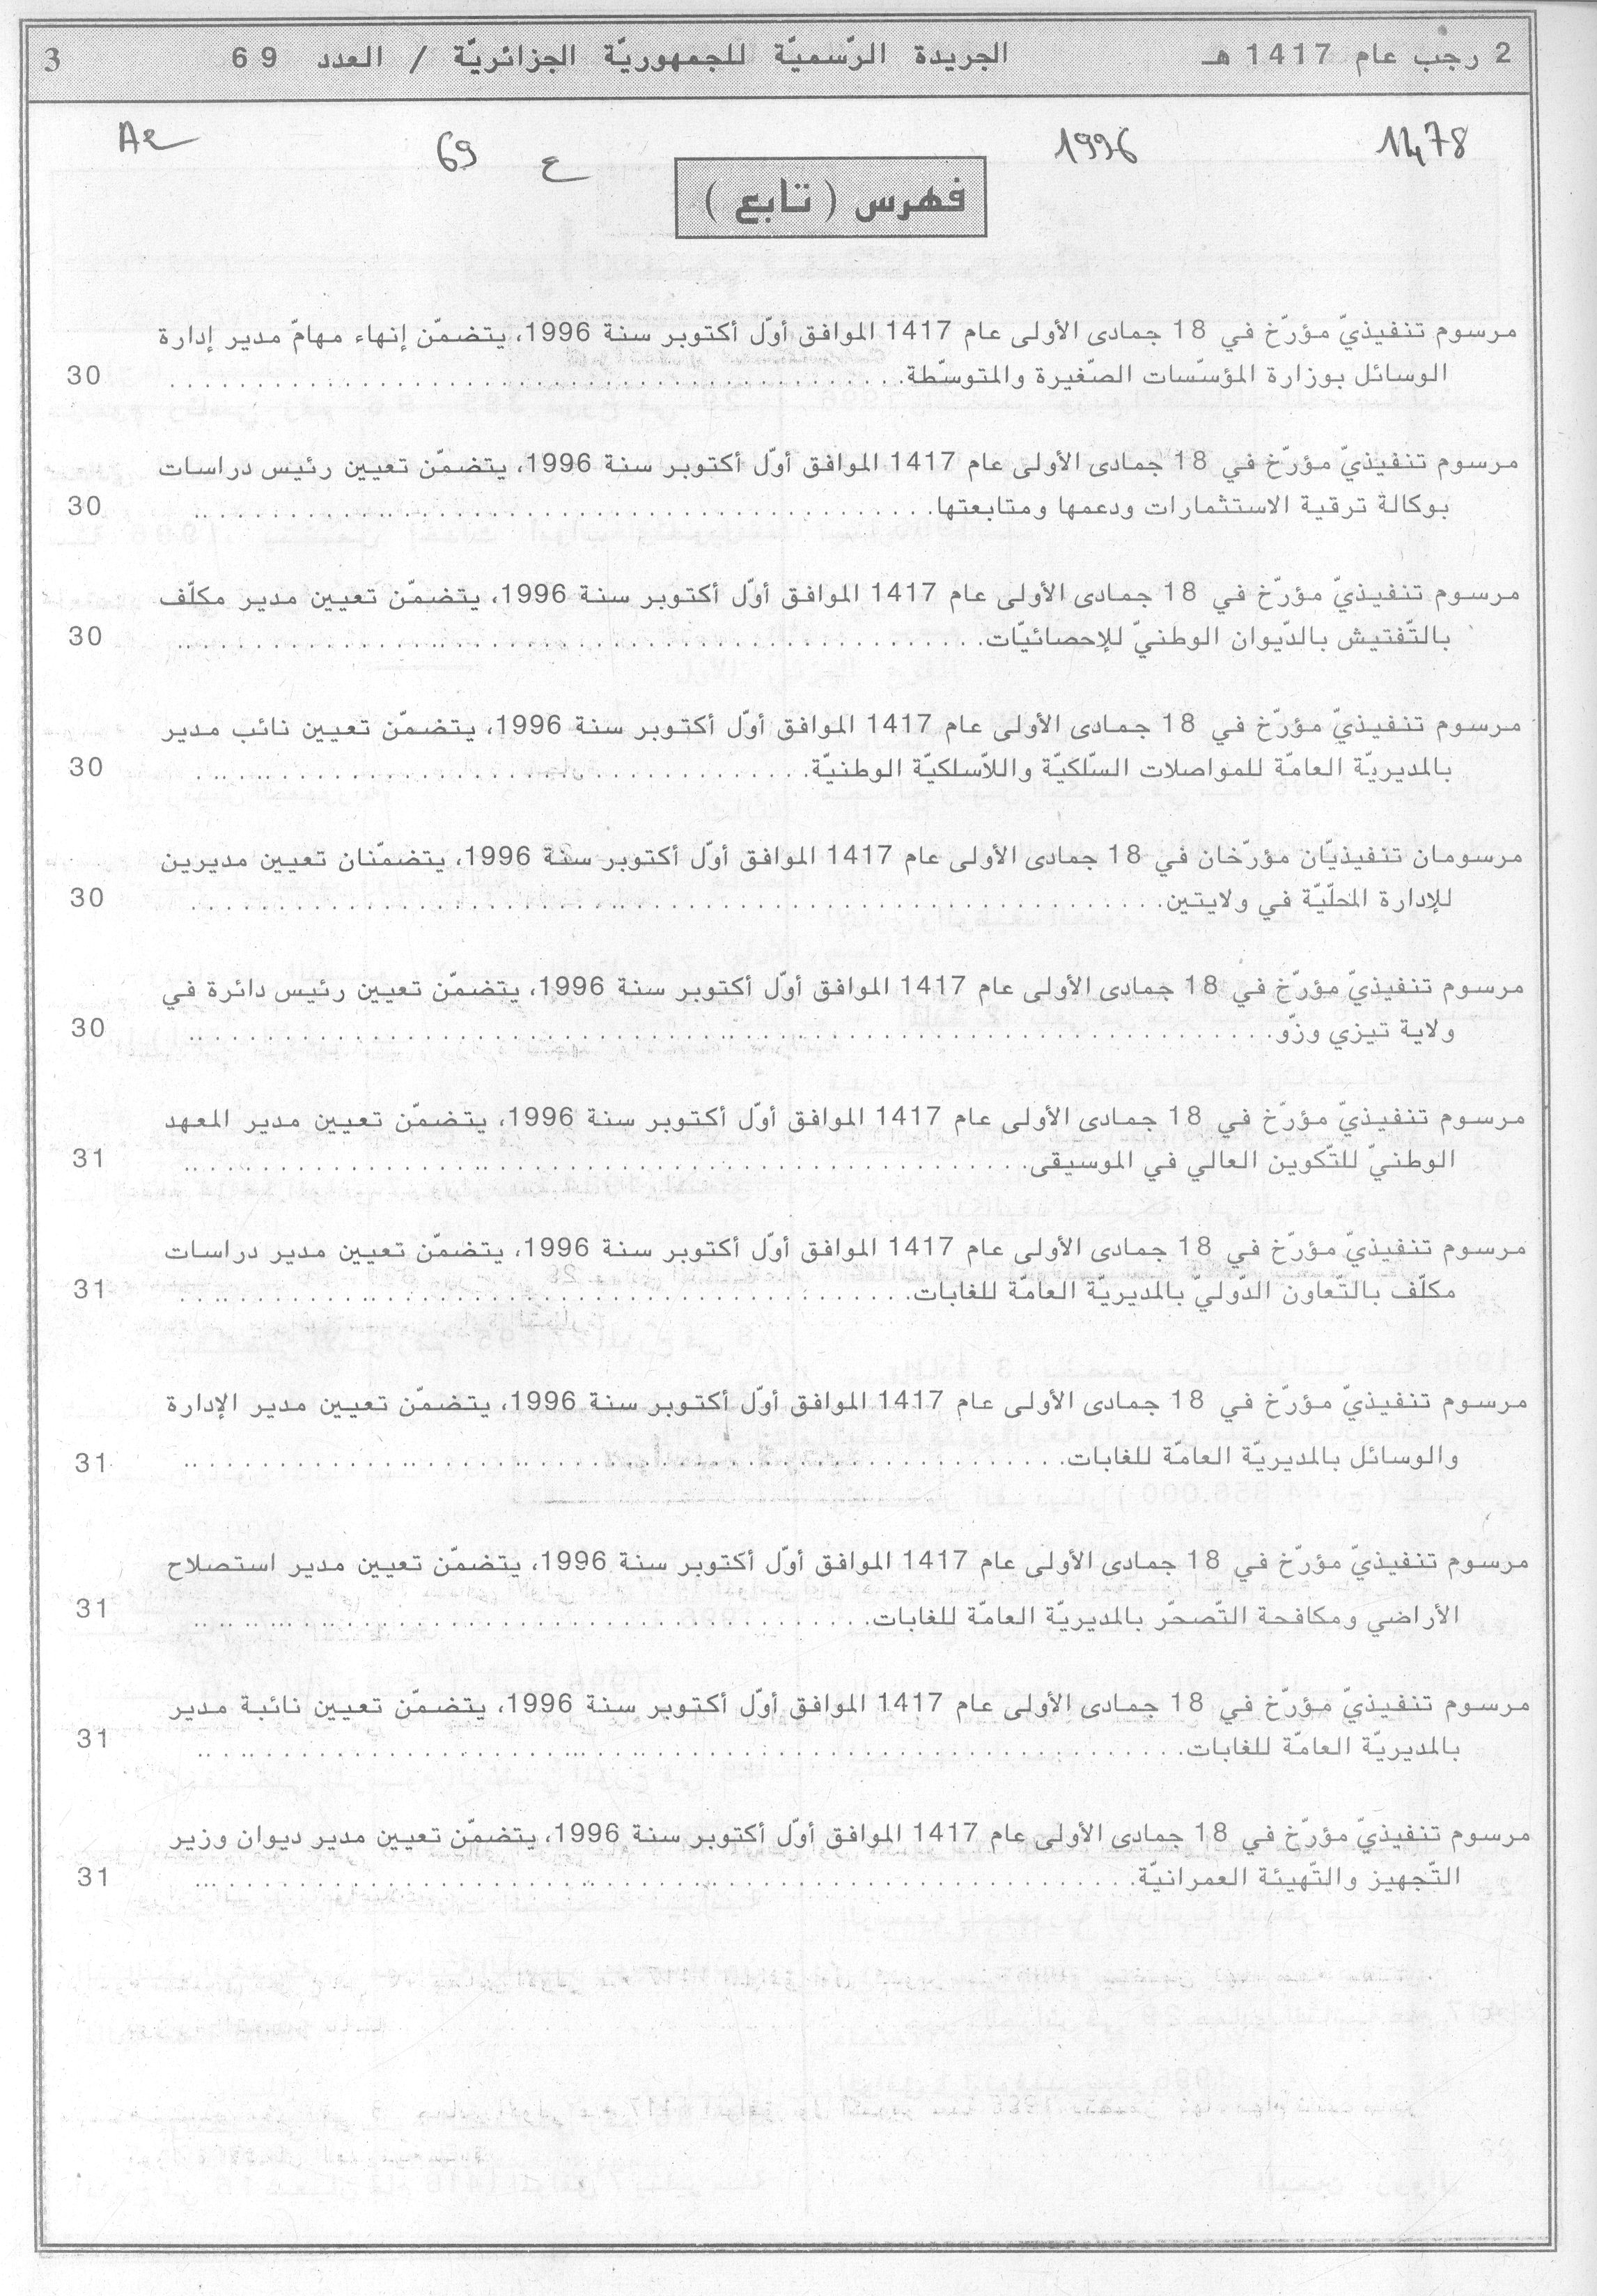 2 رجب عام 1417 هـ الجريدة الرّسميّة للجمهوريّة الجزائريّة / العدد 69 3
1478 1996 ع 69 Ae
فهرس ( تابع )
مرسوم تنفيذيّ مؤرّخ في 18 جمادى الأولى عام 1417 الموافق أوّل أكتوبر سنة 1996، يتضمّن إنهاء مهامّ مدير إدارة
الوسائل بوزارة المؤسّسات الصّغيرة والمتوسّطة. . . . . . . . . . 30
مرسوم تنفيذيّ مؤرّخ في 18 جمادى الأولى عام 1417 الموافق أوّل أكتوبر سنة 1996، يتضمّن تعيين رئيس دراسات
بوكالة ترقية الاستثمارات ودعمها ومتابعتها. . . . . . . . . . 30
مرسوم تنفيذيّ مؤرّخ في 18 جمادى الأولى عام 1417 الموافق أوّل أكتوبر سنة 1996، يتضمّن تعيين مدير مكلّف
بالتّفتيش بالدّيوان الوطنيّ للإحصائيّات. . . . . . . . . . 30
مرسوم تنفيذيّ مؤرّخ في 18 جمادى الأولى عام 1417 الموافق أوّل أكتوبر سنة 1996، يتضمّن تعيين نائب مدير
بالمديريّة العامّة للمواصلات السّلكيّة واللاّسلكيّة الوطنيّة. . . . . . . . . . 30
مرسومان تنفيذيّان مؤرّخان في 18 جمادى الأولى عام 1417 الموافق أوّل أكتوبر سنة 1996، يتضمّنان تعيين مديرين
للإدارة المحلّيّة في ولايتين. . . . . . . . . . 30
مرسوم تنفيذيّ مؤرّخ في 18 جمادى الأولى عام 1417 الموافق أوّل أكتوبر سنة 1996، يتضمّن تعيين رئيس دائرة في
ولاية تيزي وزّو. . . . . . . . . . 30
مرسوم تنفيذيّ مؤرّخ في 18 جمادى الأولى عام 1417 الموافق أوّل أكتوبر سنة 1996، يتضمّن تعيين مدير المعهد
الوطنيّ للتّكوين العالي في الموسيقى. . . . . . . . . . 31
مرسوم تنفيذيّ مؤرّخ في 18 جمادى الأولى عام 1417 الموافق أوّل أكتوبر سنة 1996، يتضمّن تعيين مدير دراسات
مكلّف بالتّعاون الدّوليّ بالمديريّة العامّة للغابات. . . . . . . . . . 31
مرسوم تنفيذيّ مؤرّخ في 18 جمادى الأولى عام 1417 الموافق أوّل أكتوبر سنة 1996، يتضمّن تعيين مدير الإدارة
والوسائل بالمديريّة العامّة للغابات. . . . . . . . . . 31
مرسوم تنفيذيّ مؤرّخ في 18 جمادى الأولى عام 1417 الموافق أوّل أكتوبر سنة 1996، يتضمّن تعيين مدير استصلاح
الأراضي ومكافحة التّصحّر بالمديريّة العامّة للغابات. . . . . . . . . . 31
مرسوم تنفيذيّ مؤرّخ في 18 جمادى الأولى عام 1417 الموافق أوّل أكتوبر سنة 1996، يتضمّن تعيين نائبة مدير
بالمديريّة العامّة للغابات. . . . . . . . . . 31
مرسوم تنفيذيّ مؤرّخ في 18 جمادى الأولى عام 1417 الموافق أوّل أكتوبر سنة 1996، يتضمّن تعيين مدير ديوان وزير
التّجهيز والتّهيئة العمرانيّة. . . . . . . . . . 31